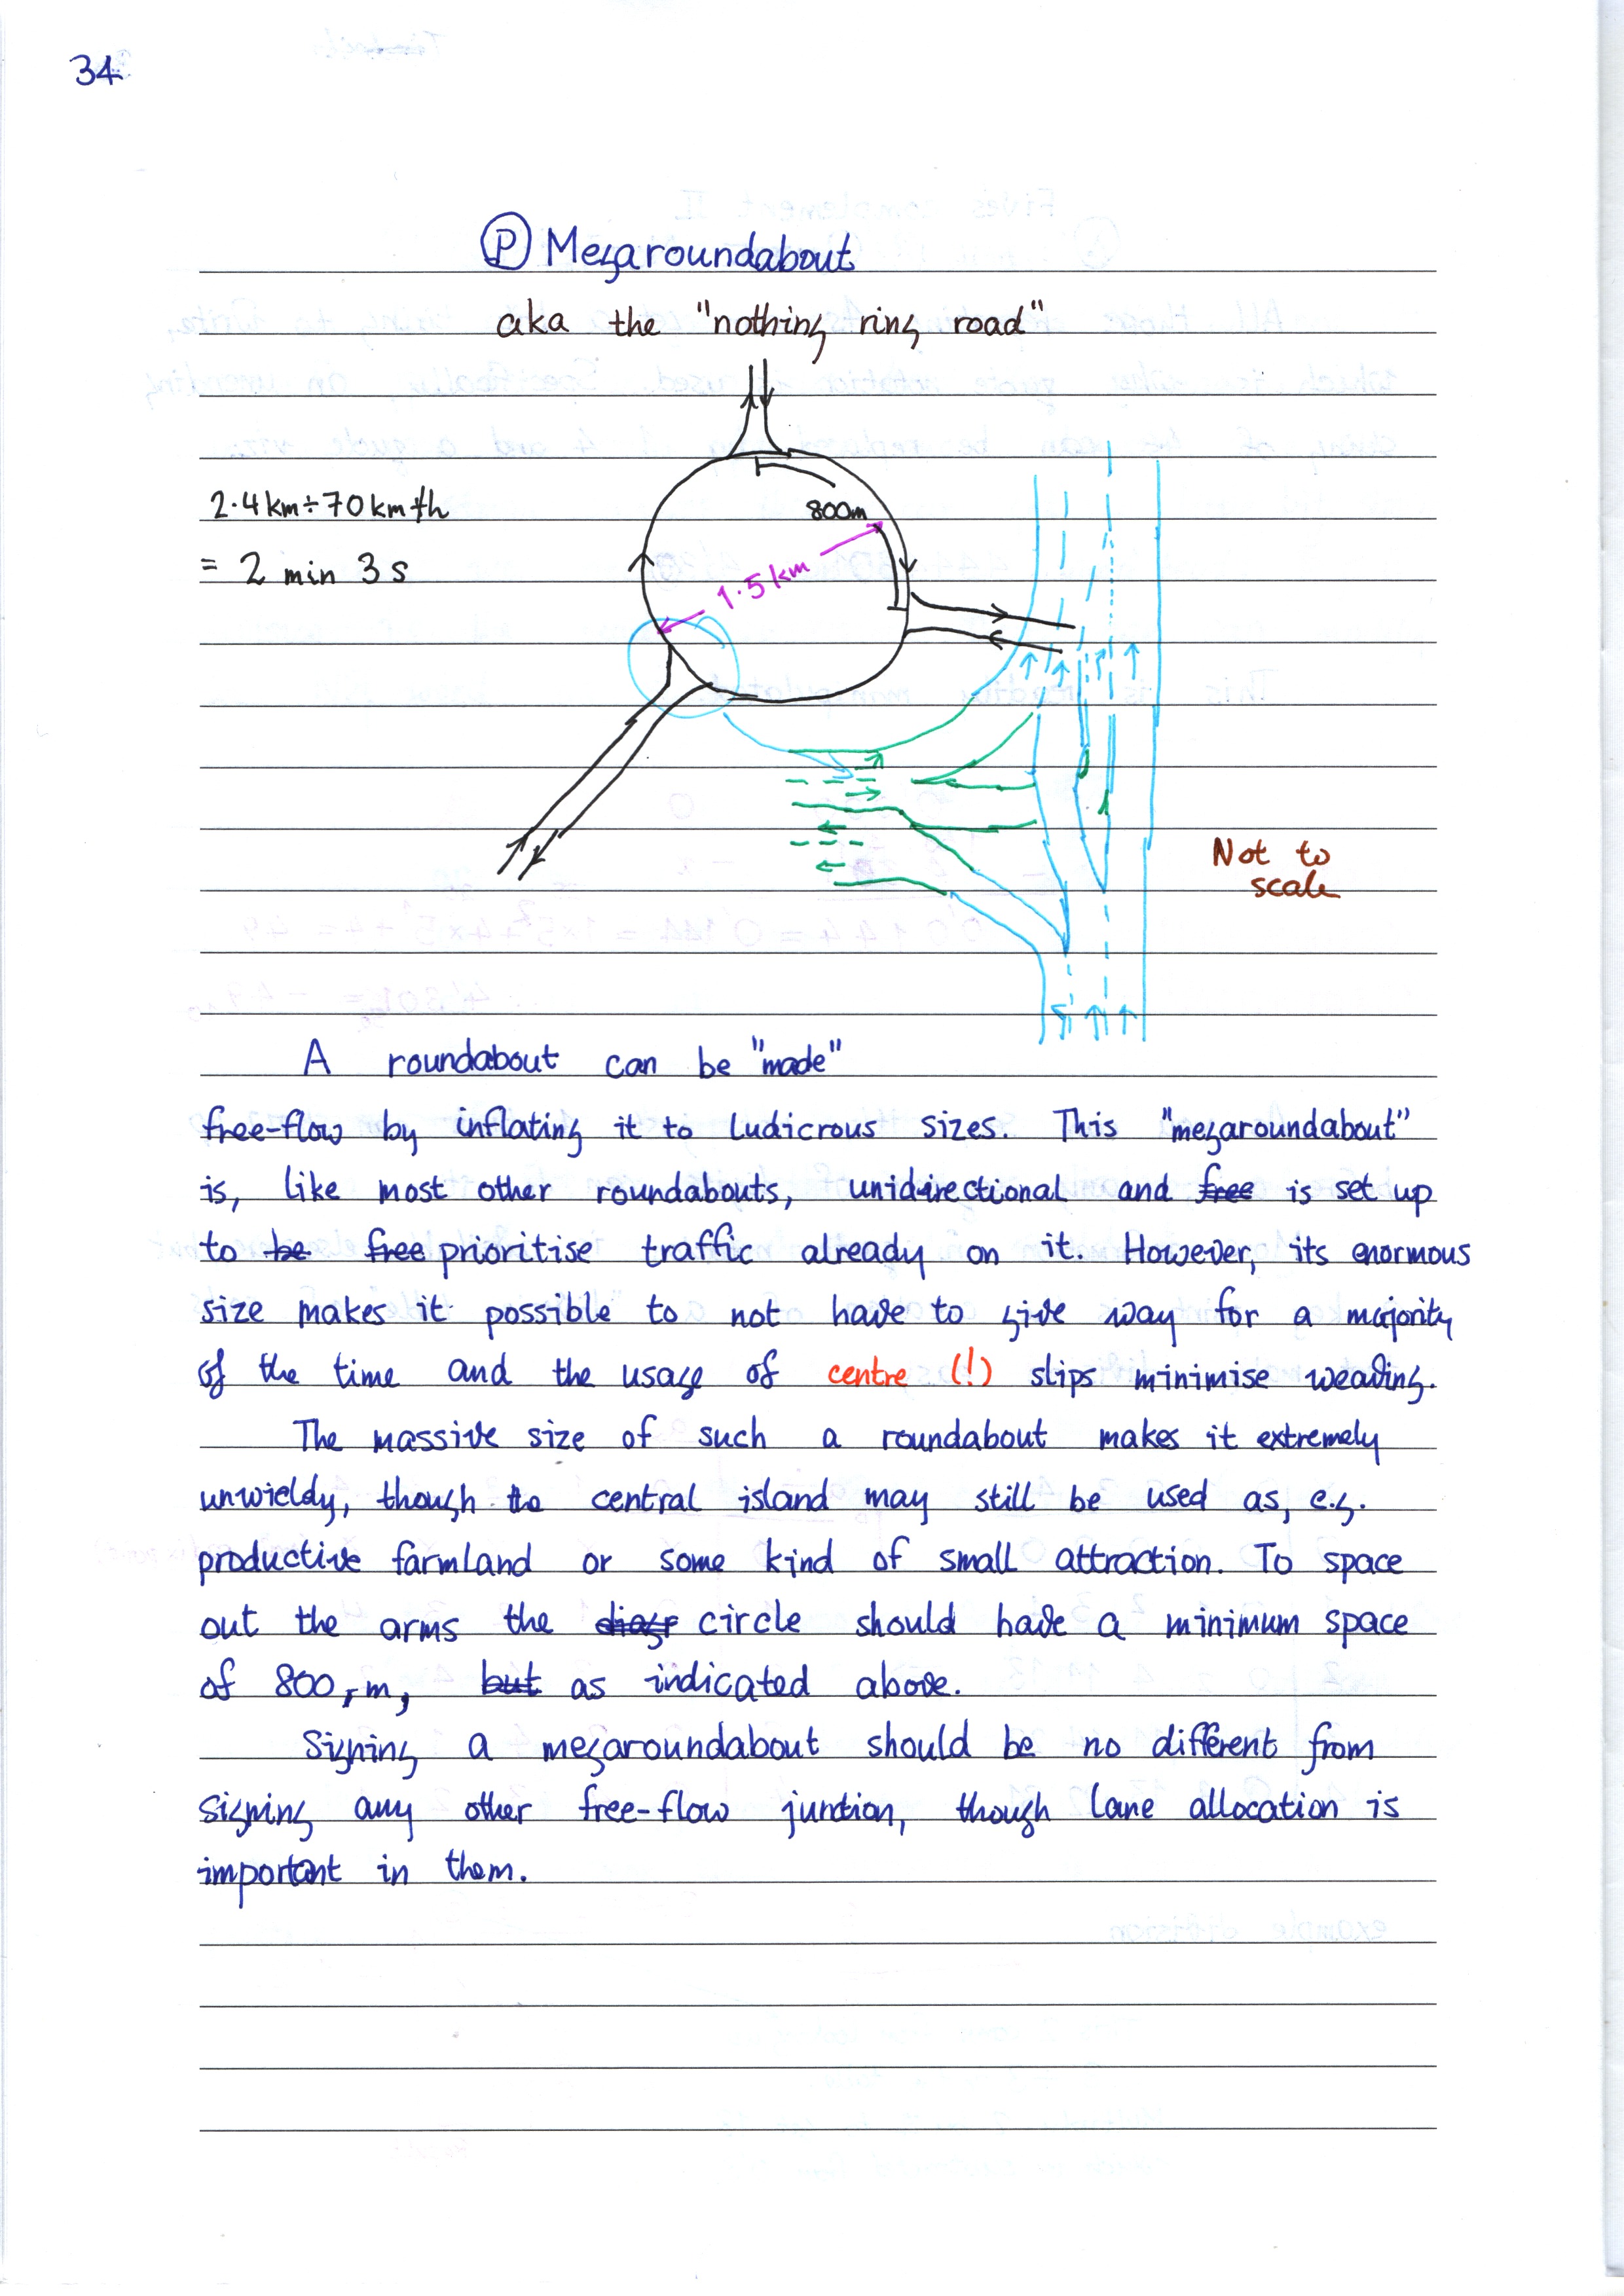 34
Ⓟ Megaroundabout
aka the "nothing ring road"
800m
2.4km÷70km/h
= 2 min 3s
1.5km
Not to
scale
A roundabout can be "made"
free-flow by inflating it to ludicrous sizes. This "megaroundabout"
is, like most other roundabouts, unidirectional and free is set up
to be free prioritise traffic already on it. However, its enormous
size makes it possible to not have to give way for a majority
of the time and the usage of centre (!) slips minimise weaving.
The massive size of such a roundabout makes it extremely
unwieldy, though te central island may still be used as, e.g.
productive farmland or some kind of small attraction. To space
out the arms the circle should have a minimum space
of 800 m, but as indicated above.
Signing a megaroundabout should be no different from
signing any other free-flow junction, though lane allocation is
important in them.